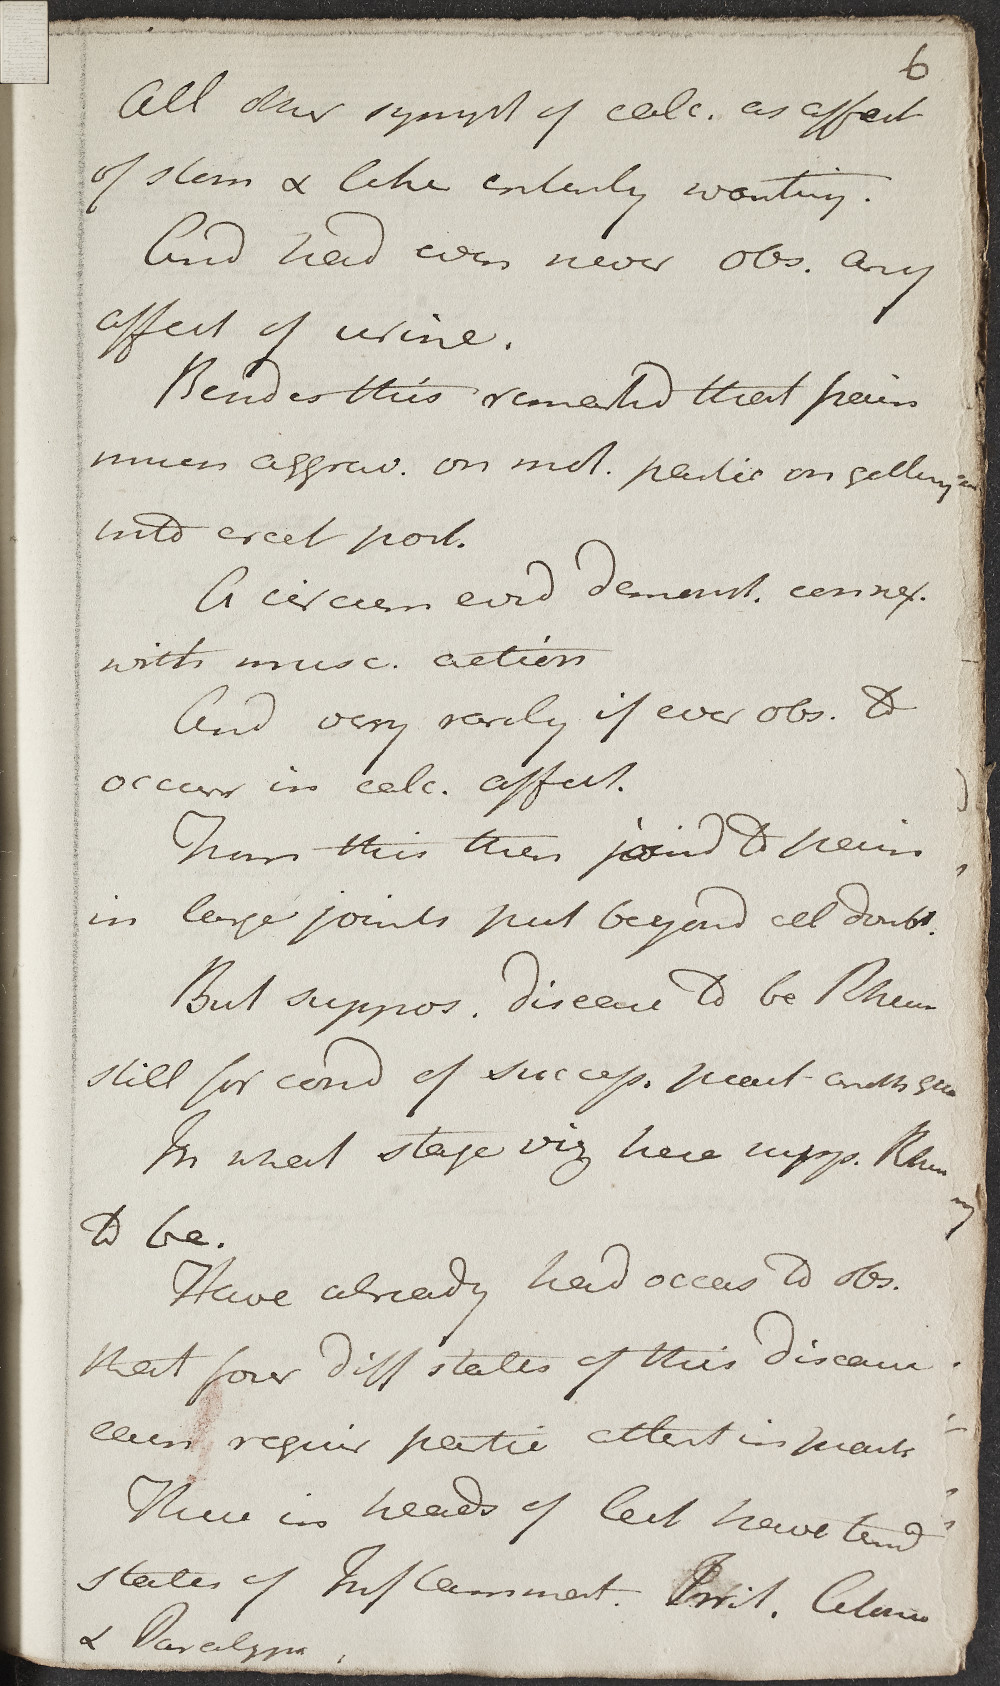 6
All other sympt of calc. as affect
of stom & like entirely wanting.
And had even never obs. any
affect of urine.
Besides this remarkd that pain
much aggrav. on mot. partic on getting
into erect post.
A circum evid demonst. connex.
with musc. action
And very rarely if ever obs. to
occurr in calc. affect.
From this then joind to pains
in large joints put beyond all doubt.
But suppos. disease to be Rheum
still for cond of succesf. pract another
In what stage viz here supp. Rheum
to be.
Have already had occas to obs.
that four diff states of this disease
each requir partic attent in pract
These in heads of lect have termd
states of Inflammat. Irrit. Atonic
& Paralys